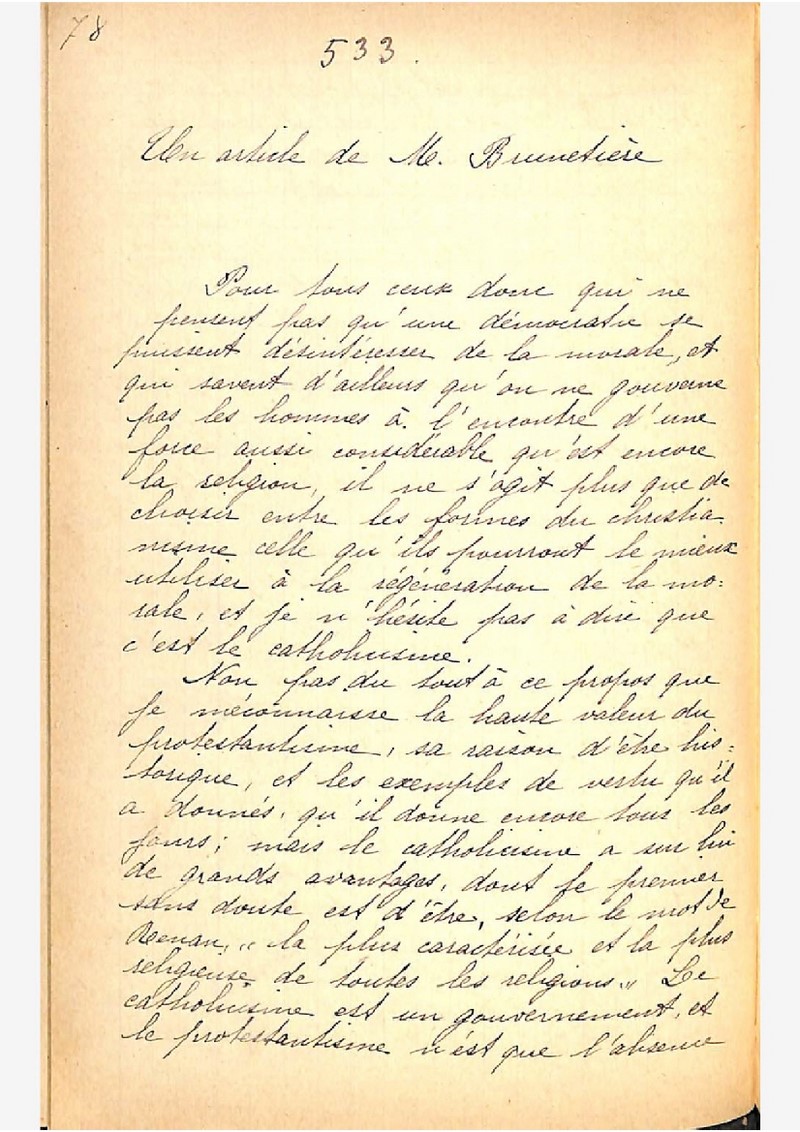 78
533.
Un article de M. Brunetière
Pour tous ceux donc qui ne
pensent pas qu'une démocratie se
puissent désintéresser de la morale, et
qui savent d'ailleurs qu'on ne gouverne
pas les hommes à l'encontre d'une
force aussi considérable qu'est encore
la religion, il ne s'agit plus que de
choisir entre les formes du christia-
nisme celle qu'ils pourront le mieux
utiliser à la régénération de la mo=
rale, et je n'hésite pas à dire que
c'est le catholicisme.
Non pas du tout à ce propos que
je méconnaisse la haute valeur du
protestantisme, sa raison d'être his=
torique, et les exemples de vertu qu'il
a donnés, qu'il donne encore tous les
jours; mais le catholicisme a sur lui
de grands avantages, dont le premier
sans doute est d'être, selon le mot de
Renan, "la plus caractérisée et la plus
religieuse de toutes les religions" Le
catholicisme est un gouvernement, et
le protestantisme n'est que l'absence